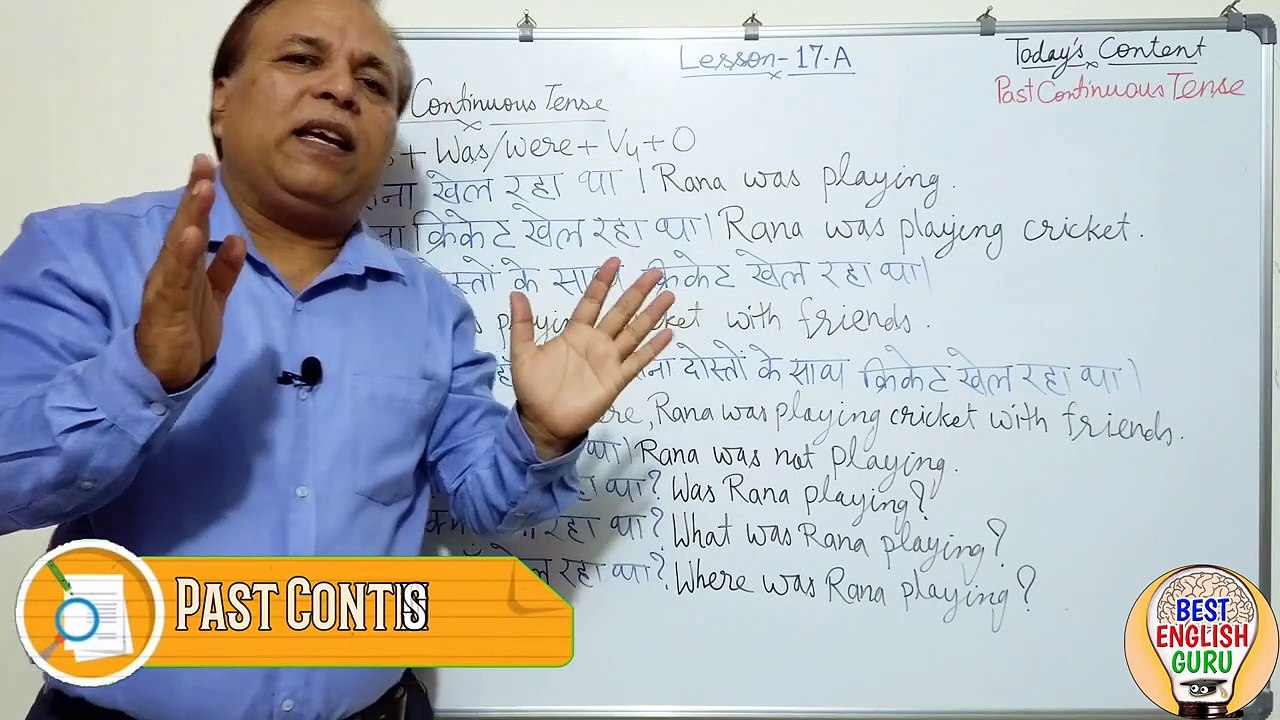 Lesson-17.A
Today's Content
Past Continuous Tense
Continuous Tense
+ Was/were + V4 + O
खेल रहा था । Rana was playing.
क्रिकेट खेल रहा था। Rana was playing cricket.
के साथ क्रिकेट खेल रहा था।
with friends.
दोस्तों के साथ क्रिकेट खेल रहा था।
Rana was playing cricket with friends.
था। Rana was not playing.
था? Was Rana playing?
रहा था? What was Rana playing?
रहा था? Where was Rana playing?
PAST CONTIS
BEST
ENGLISH
GURU